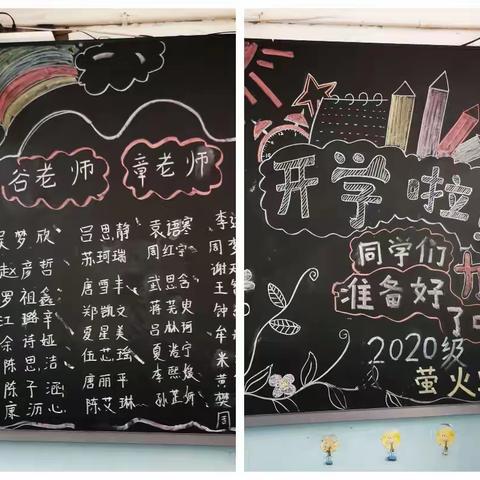 谷老师 章老师
吴梦欣 吕思静 袁语寒 李
赵彦哲 苏珂瑞 周红宇 周
罗祖鑫 唐雪丰 武思含 谢
江璐辛 郑凯文 蒋芜史 王
余诗娅 夏星美 吕林珂 钟
陈思洁 伍芯瑶 夏岩宁 牟
陈子涵 唐丽平 李熙 米
康沥心 陈艾琳 孙芷妍 黄
樊
开学啦
同学们
准备好
了
2020级
萤火